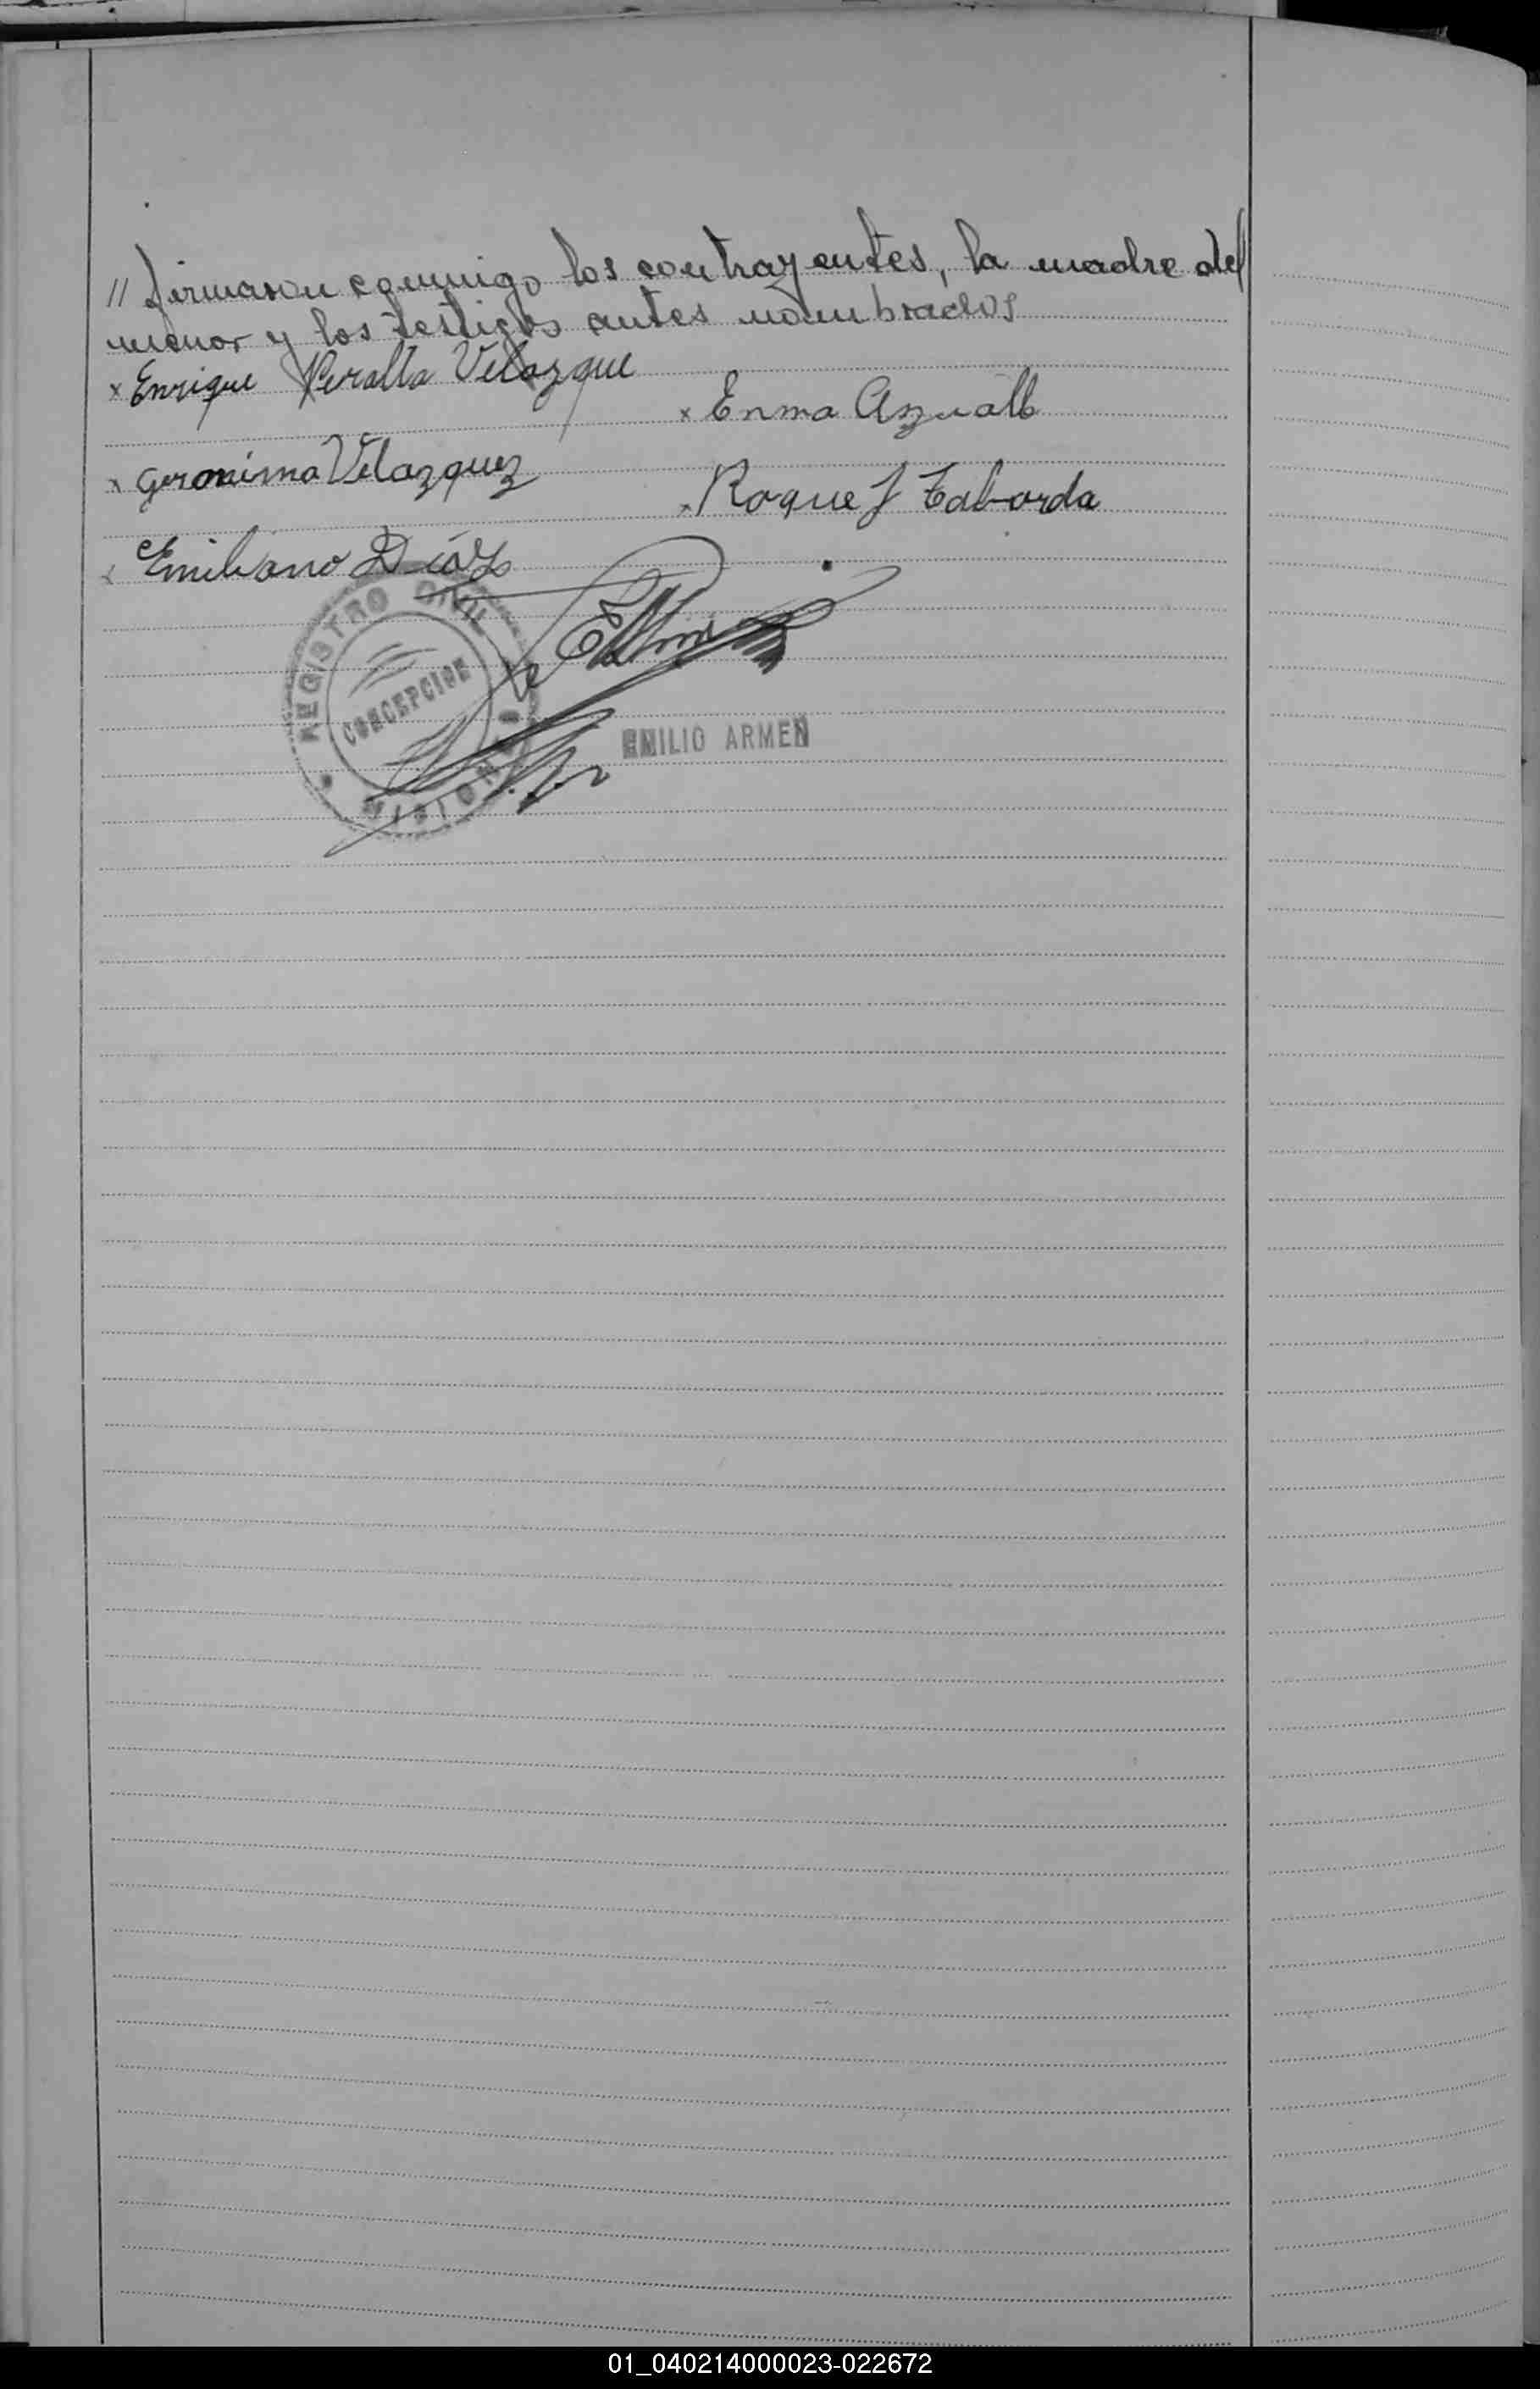 // firmaron conmigo los contrayentes, la madre del
menor y los testigos antes nombrados
x Enrique Peralta Velazque
x Enma Azualb
x Geronima Velazquez
x Roque J Taborda
x Emiliano Díaz
REGISTRO CIVIL
CONCEPCION
MISIONES
EMILIO ARMEN
01_040214000023-022672